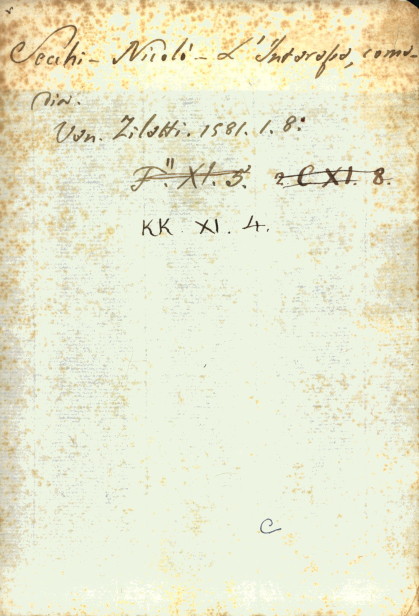 Secchi - Nicolò - L'Interesse, come-
dia.
Ven. Ziletti. 1581. 1. 8:
F." XI. 5. 2 C XI. 8.
KK XI. 4.
C